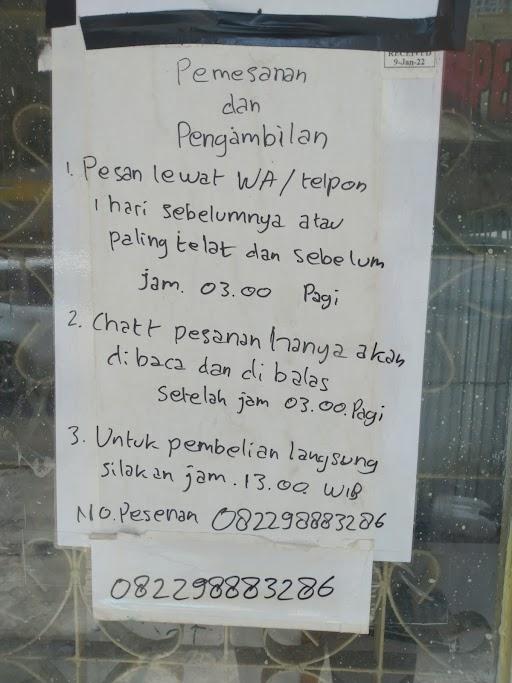 RECEIVED
9-Jan-22
Pemesanan
dan
Pengambilan
1. Pesan lewat WA/telpon
1 hari sebelumnya atau
paling telat dan sebelum
jam. 03.00 Pagi
2. Chatt pesanan hanya akan
di baca dan di balas
setelah jam 03.00.Pagi
3. Untuk pembelian langsung
silakan jam. 13.00 WIB
No.Pesenan 082298883286
082298883286